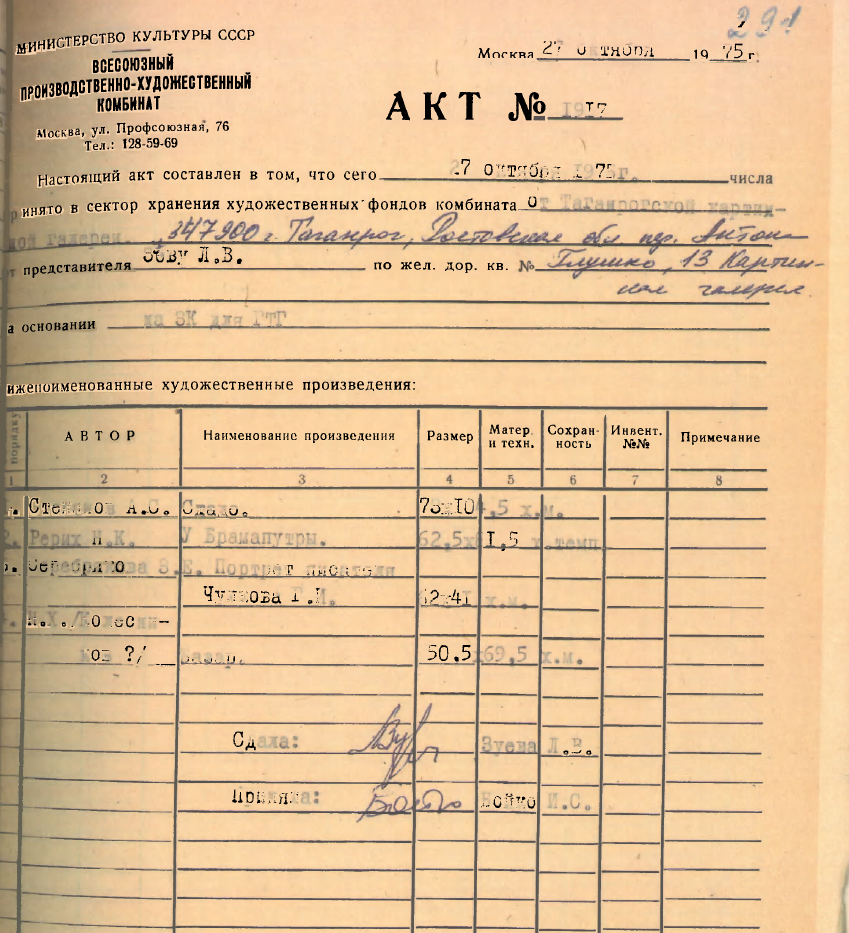 291
МИНИСТЕРСТВО КУЛЬТУРЫ СССР
ВСЕСОЮЗНЫЙ
ПРОИЗВОДСТВЕННО-ХУДОЖЕСТВЕННЫЙ
КОМБИНАТ
Москва, ул. Профсоюзная, 76
Тел.: 128-59-69
Москва 27 октября 1975г.
АКТ № 1917
Настоящий акт составлен в том, что сего 27 октября 1975г. числа
ринято в сектор хранения художественных фондов комбината от Таганрогской картин-
ной галереи. 347900 г. Таганрог, Ростовская обл. пер. Антона
представителя Л.В. по жел. дор. кв. № Глушко, 13 Картин-
ная галерея.
а основании на ЗК для ГТГ
ижепоименованные художественные произведения:
порядку АВТОР Наименование произведения Размер Матер. и техн. Сохран-ность Инвент. №№ Примечание
1 2 3 4 5 6 7 8
А.С. 4,5 х.м.
2. Рерих Н.К. У Брамапутры. 62,5х 1,5 х.темп
Серебрякова З.Е. Портрет писателя
Чулкова Г.И. 62х41 х.м.
Н.Х./Колесни-
ков ?/ Базар. 50.5х69,5 х.м.
Сдала: Зуева Л.В.
Приняла: Бойко И.С.